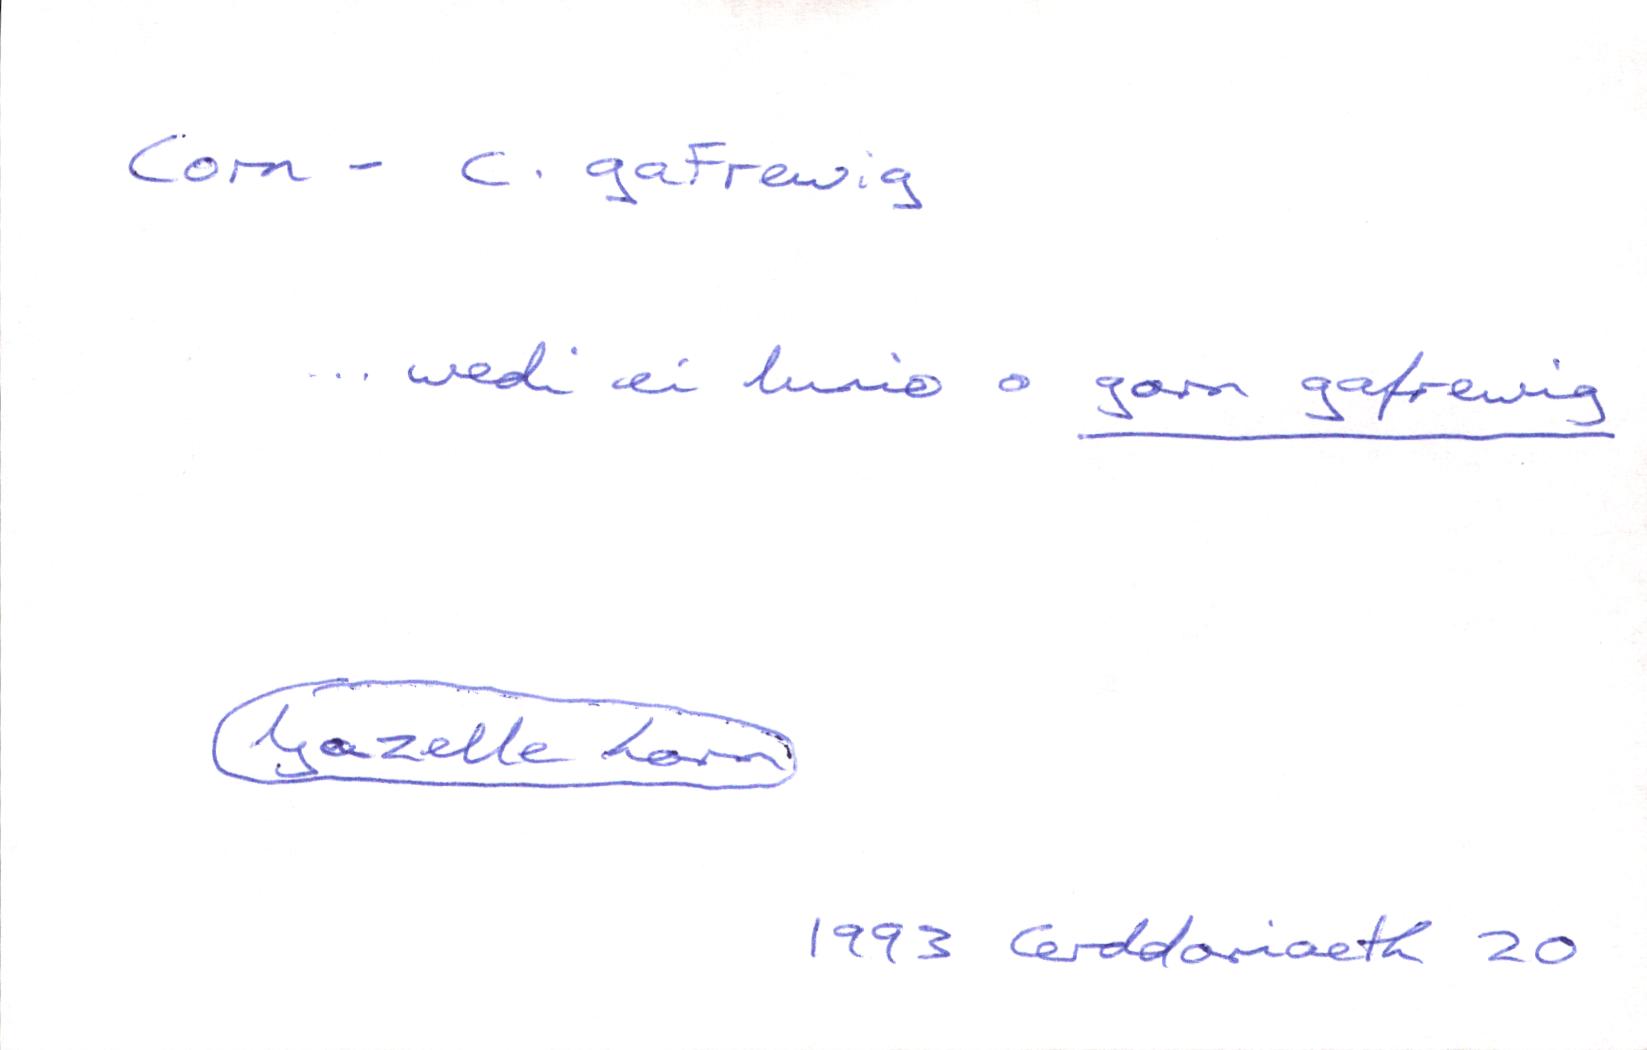 Corn - c. gafrewig
... wedi ei lunio o gorn gafrewig
Gazelle horn
1993 Cerddoriaeth 20